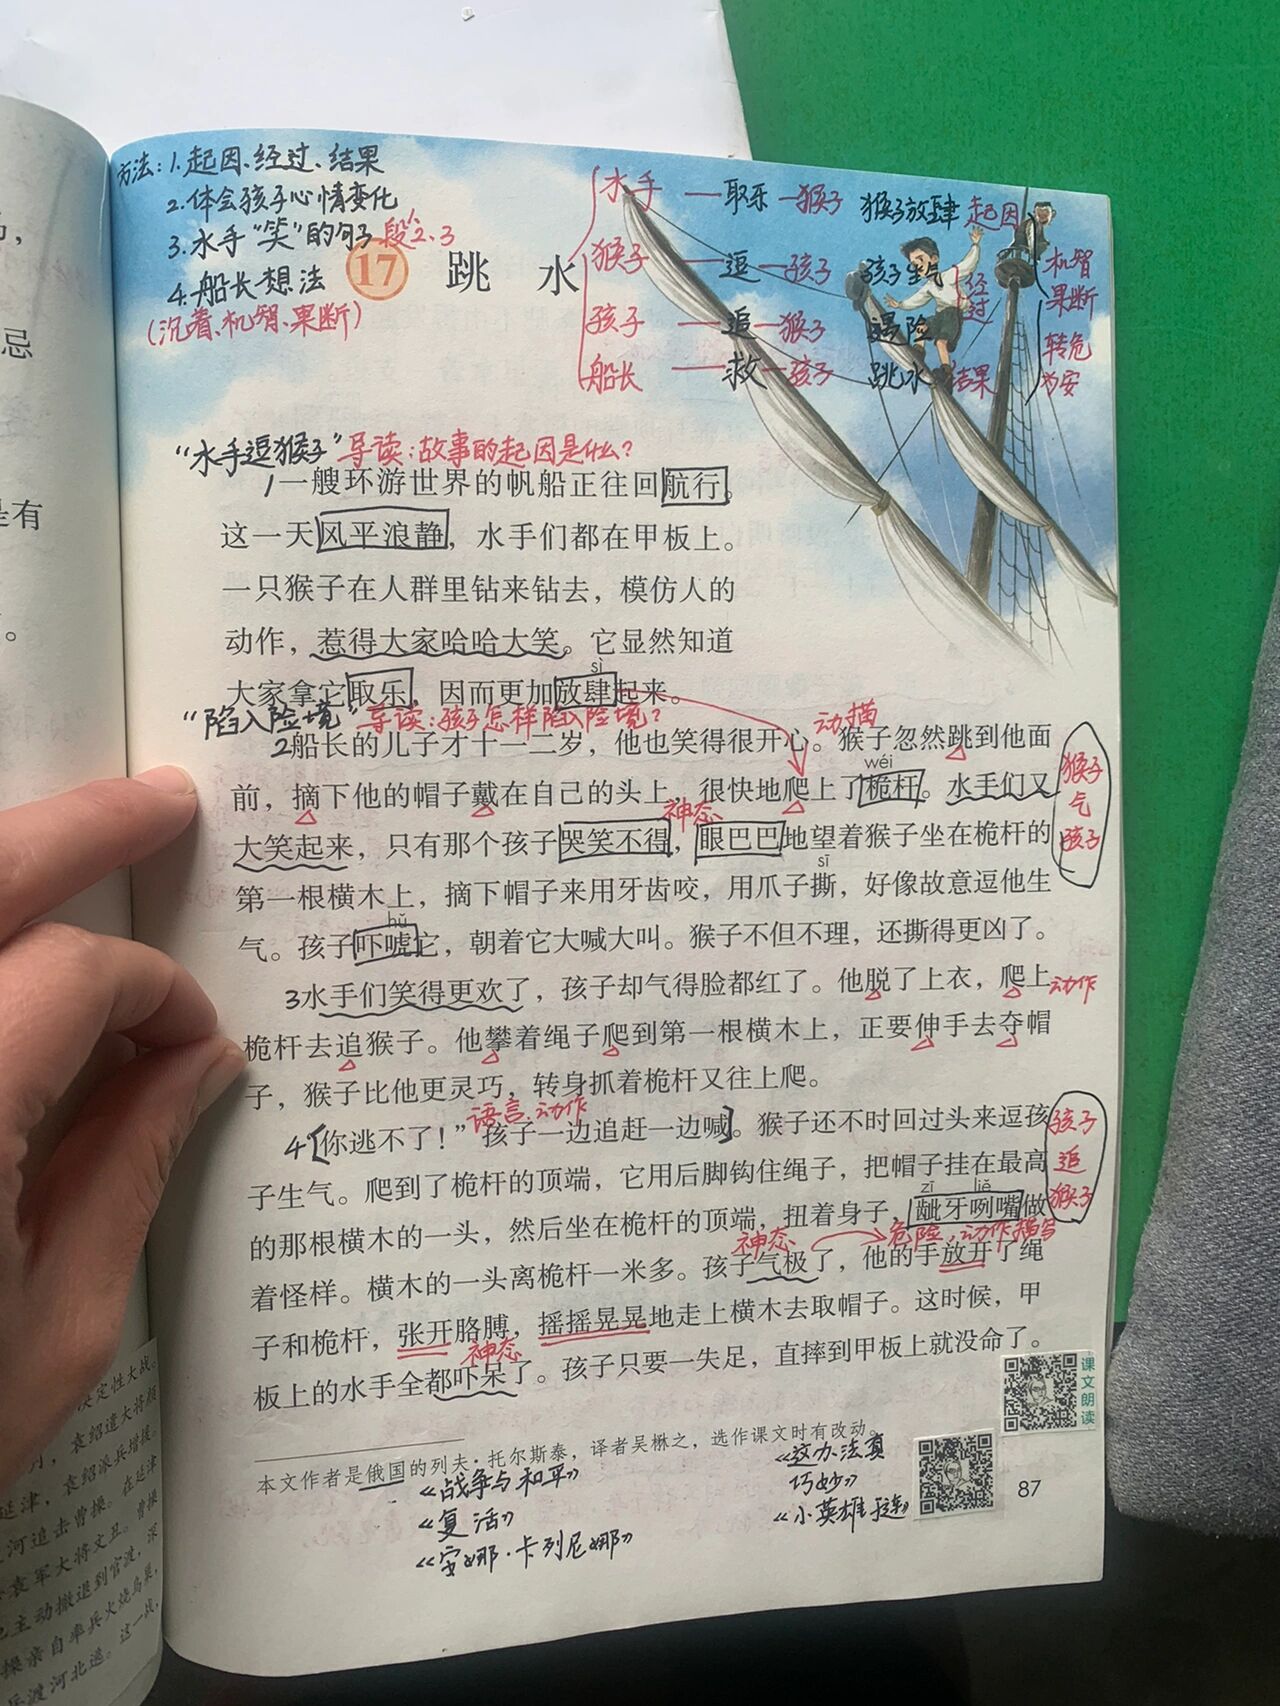 方法：1.起因、经过、结果
2.体会孩子心情变化
3.水手“笑”的句子 段2、3
4.船长想法
（沉着、机智、果断）
17 跳水
水手—取乐—猴子 猴子放肆 起因
猴子—逗—孩子 孩子生气
孩子—追—猴子 遇险
经过
船长—救—孩子 跳水 结果
机智
果断
转危
为安
“水手逗猴子”导读：故事的起因是什么？
1一艘环游世界的帆船正往回航行。
这一天风平浪静，水手们都在甲板上。
一只猴子在人群里钻来钻去，模仿人的
动作，惹得大家哈哈大笑。它显然知道
sì
大家拿它取乐，因而更加放肆起来。
“陷入险境”导读：孩子怎样陷入险境？
动描
2船长的儿子才十一二岁，他也笑得很开心。猴子忽然跳到他面
wéi
前，摘下他的帽子戴在自己的头上，很快地爬上了桅杆。水手们又
神态
大笑起来，只有那个孩子哭笑不得，眼巴巴地望着猴子坐在桅杆的
猴子
气
孩子
sī
第一根横木上，摘下帽子来用牙齿咬，用爪子撕，好像故意逗他生
hǔ
气。孩子吓唬它，朝着它大喊大叫。猴子不但不理，还撕得更凶了。
3水手们笑得更欢了，孩子却气得脸都红了。他脱了上衣，爬上
动作
桅杆去追猴子。他攀着绳子爬到第一根横木上，正要伸手去夺帽
子，猴子比他更灵巧，转身抓着桅杆又往上爬。
语言、动作
4“你逃不了！”孩子一边追赶一边喊。猴子还不时回过头来逗孩
子生气。爬到了桅杆的顶端，它用后脚钩住绳子，把帽子挂在最高
孩子
追
猴子
zī liě
的那根横木的一头，然后坐在桅杆的顶端，扭着身子，龇牙咧嘴做
神态 危险、动作描写
着怪样。横木的一头离桅杆一米多。孩子气极了，他的手放开了绳
子和桅杆，张开胳膊，摇摇晃晃地走上横木去取帽子。这时候，甲
神态
板上的水手全都吓呆了。孩子只要一失足，直摔到甲板上就没命了。
课文朗读
本文作者是俄国的列夫·托尔斯泰，译者吴楙之，选作课文时有改动。
《战争与和平》
《复活》
《安娜·卡列尼娜》
《这办法真
巧妙》
87
忌
是有
。
决定性大战。
袁绍遣大将颜
袁绍派兵增援。
在延津
河追击曹操。曹操
袁军大将文丑。
主动撤退到官渡，深
操亲自率兵火烧乌巢，
兵渡河北逃。这一战，